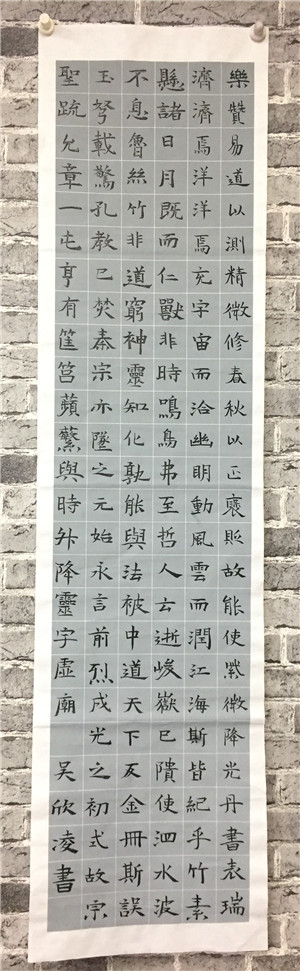 樂贊易道以測精微修春秋以正褒貶故能使紫微降光丹書表瑞
濟濟焉洋洋焉充宇宙而洽幽明動風雲而潤江海斯皆紀乎竹素
懸諸日月既而仁獸非時鳴鳥弗至哲人云逝峻嶽已隤使泗水波
不息魯絲竹非道窮神靈知化孰能與法被中道天下反金冊斯誤
玉弩載驚孔教已焚秦宗亦墜之元始永言前烈成光之初式故宗
聖疏允章一屯亨有筐筥蘋蘩與時升降靈宇虛廟
吳欣凌書